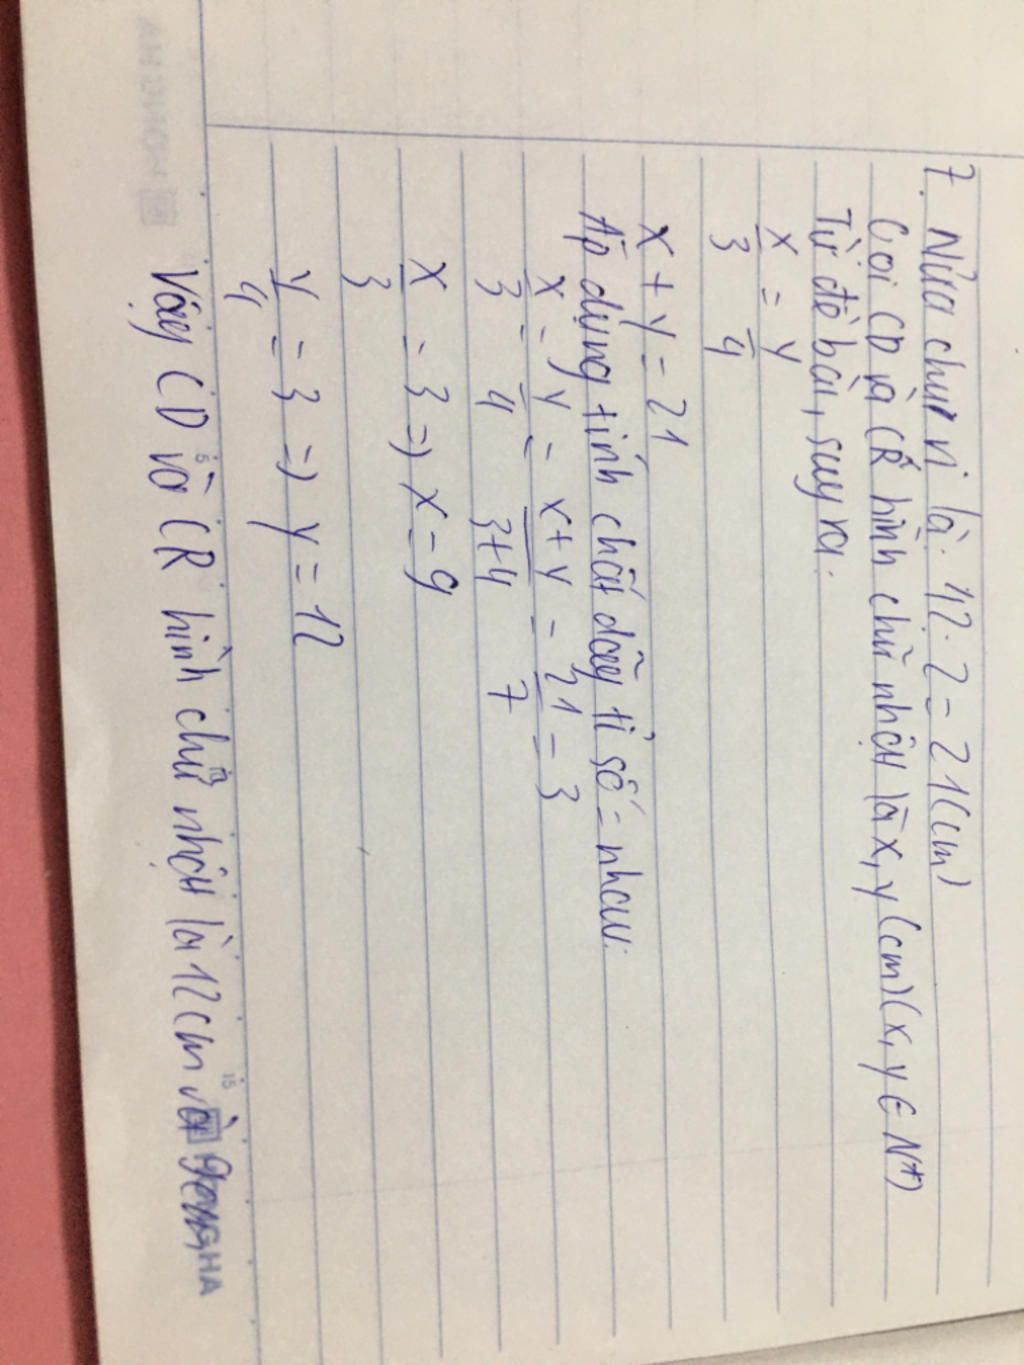 7. Nửa chu vi là: 42 : 2 = 21 (cm)
Gọi CD và CR hình chữ nhật là x, y (cm) (x, y ∈ N*)
Từ đề bài, suy ra:
x/3 = y/4
x + y = 21
Áp dụng tính chất dãy tỉ số = nhau:
x/3 = y/4 = x+y/3+4 = 21/7 = 3
x/3 = 3 => x = 9
y/4 = 3 => y = 12
Vậy CD và CR hình chữ nhật là 12cm và 9cm